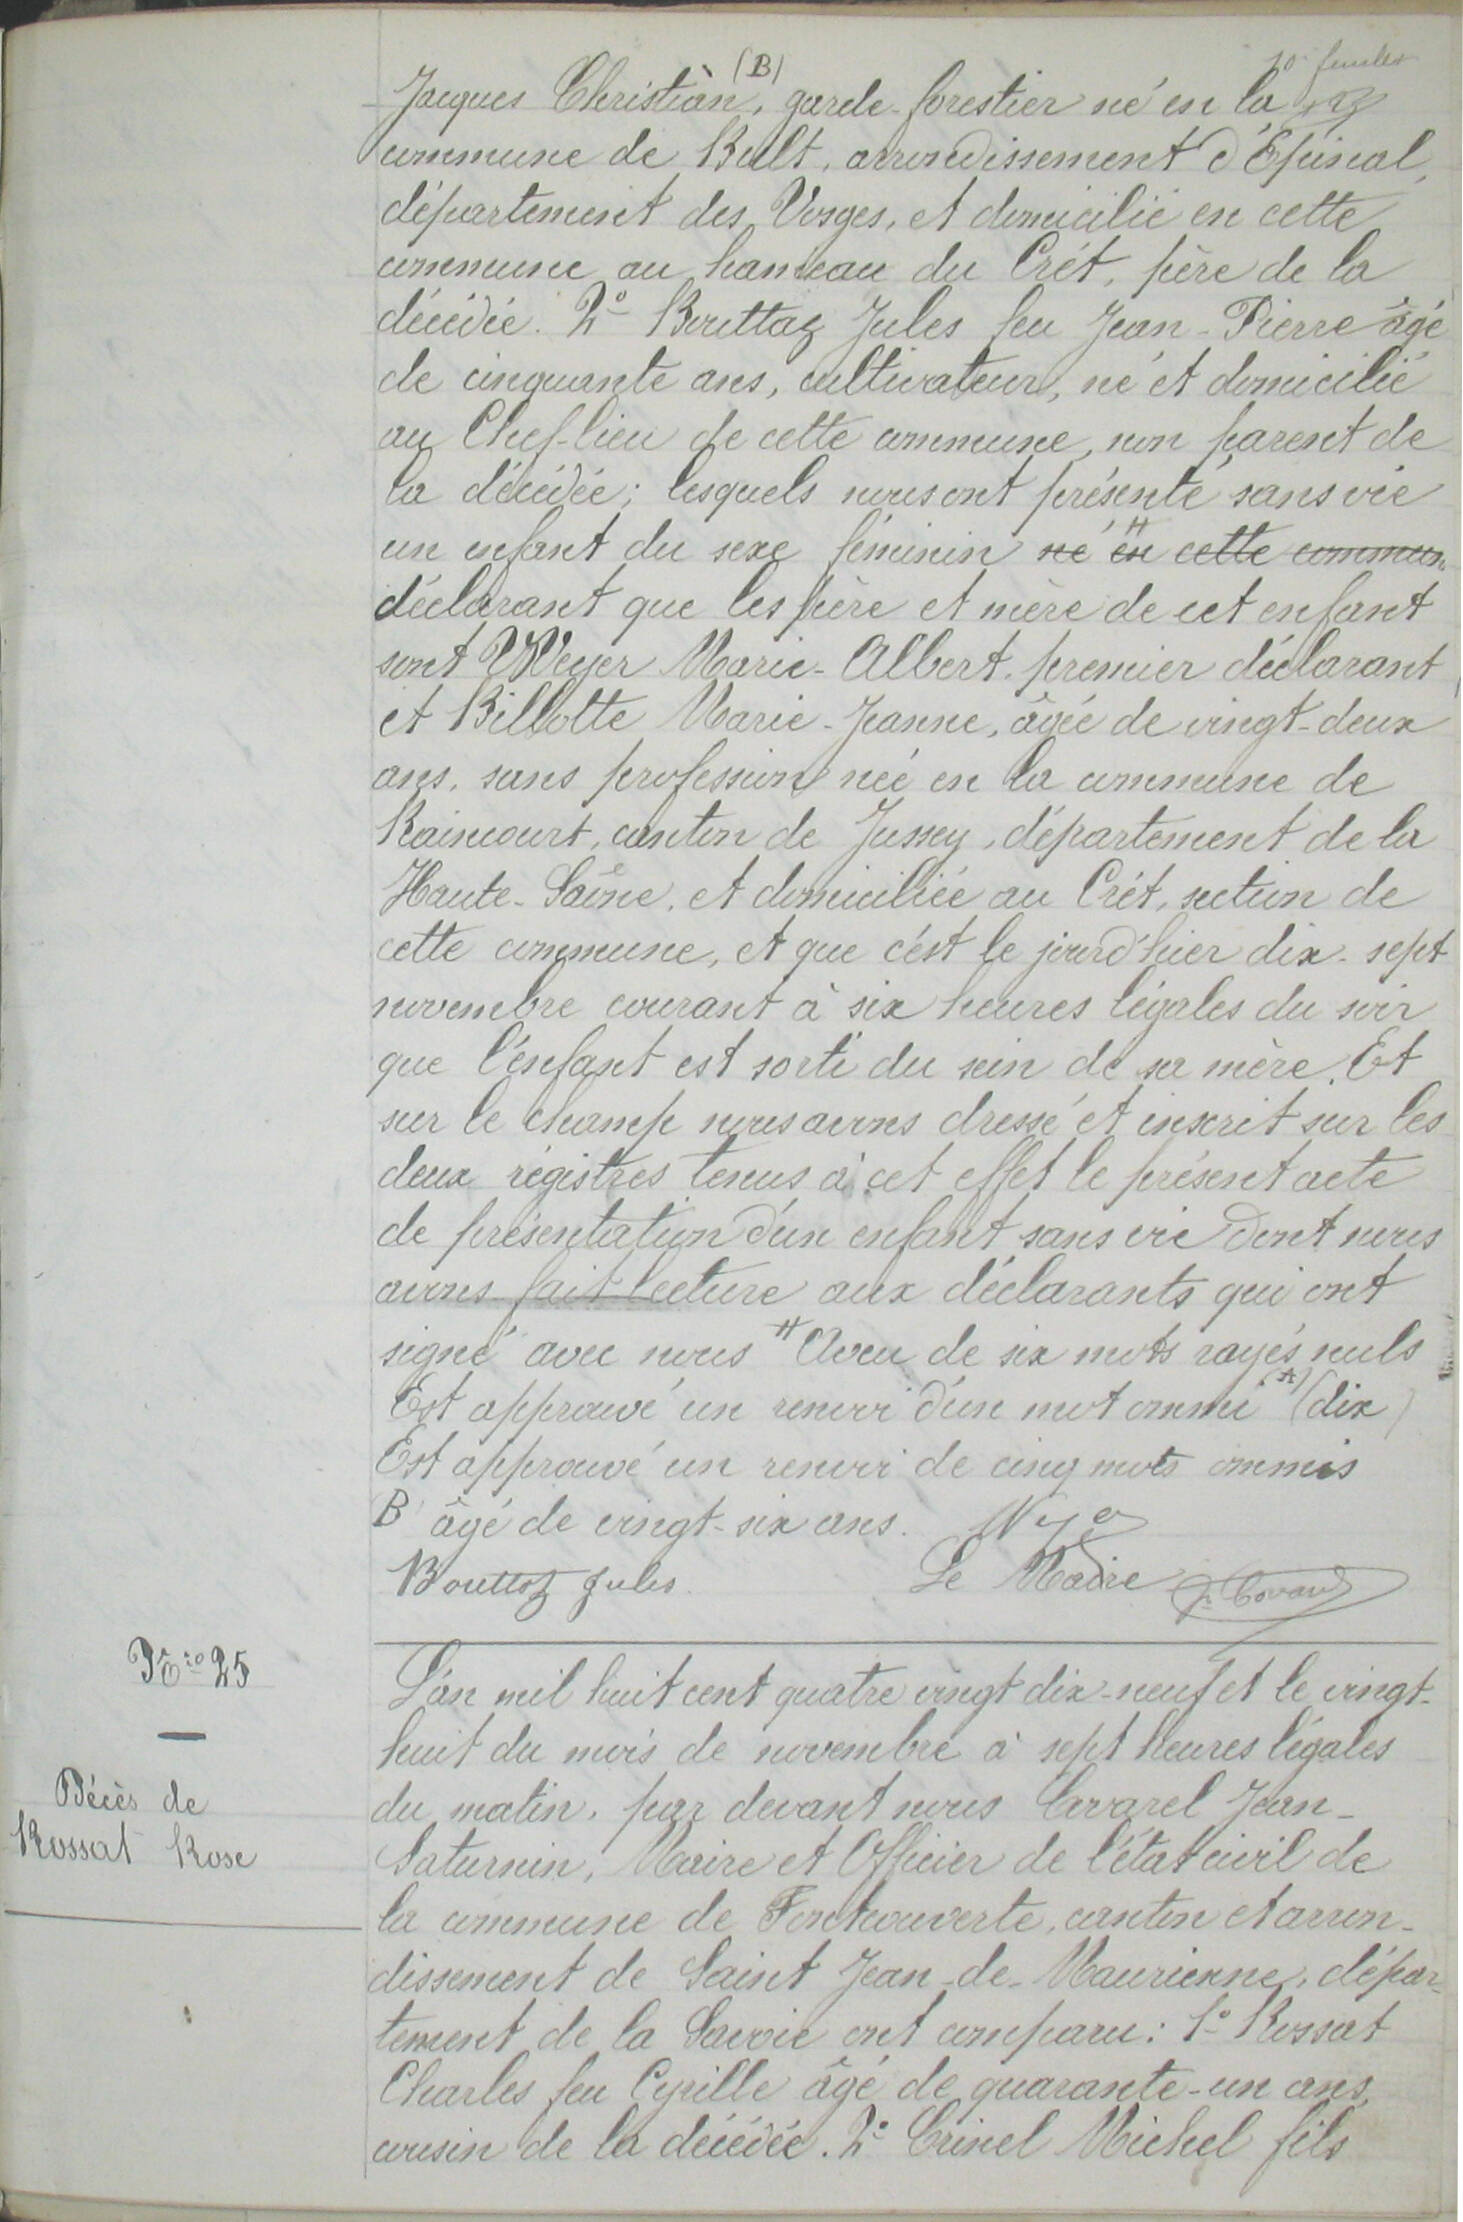 10e feuillet
Jacques Christian (B), garde-forestier né en la
commune de Bult, arrondissement d'Épinal,
département des Vosges, et domicilié en cette
commune au hameau du Crêt, père de la
décédée. 2° Bouttaz Jules feu Jean-Pierre âgé
de cinquante ans, cultivateur, né et domicilié
au Chef-lieu de cette commune, non parent de
la décédée; lesquels nous ont présenté sans vie
un enfant du sexe féminin né # en cette commune
déclarant que les père et mère de cet enfant
sont Weyer Marie-Albert, premier déclarant
et Billotte Marie-Jeanne, âgée de vingt-deux
ans, sans profession née en la commune de
Raincourt, canton de Jussey, département de la
Haute-Saône, et domiciliée au Crêt, section de
cette commune, et que c'est le jourd'hier dix-sept
novembre courant à six heures légales du soir
que l'enfant est sorti du sein de sa mère. Et
sur le champ nous avons dressé et inscrit sur les
deux régistres tenus à cet effet le présent acte
de présentation d'un enfant sans vie dont nous
avons fait lecture aux déclarants qui ont
signé avec nous # Aveu de six mots rayés nuls
Est approuvé un renvoi d'un mot ommi (A) (dix)
Est approuvé un renvoi de cinq mots ommis
B âgé de vingt-six ans. Weyer
Bouttaz Jules Le Maire
No 25
Décès de
Rossat Rose
L'an mil huit cent quatre vingt dix-neuf et le vingt-
huit du mois de novembre à sept heures légales
du matin, par devant nous Covarel Jean-
Saturnin, Maire et Officier de l'état civil de
la commune de Fontcouverte, canton et arron-
dissement de Saint Jean-de-Maurienne, dépar-
tement de la Savoie ont comparu: 1° Rossat
Charles feu Cyrille âgé de quarante-un ans,
cousin de la décédée. 2° Crinel Michel fils